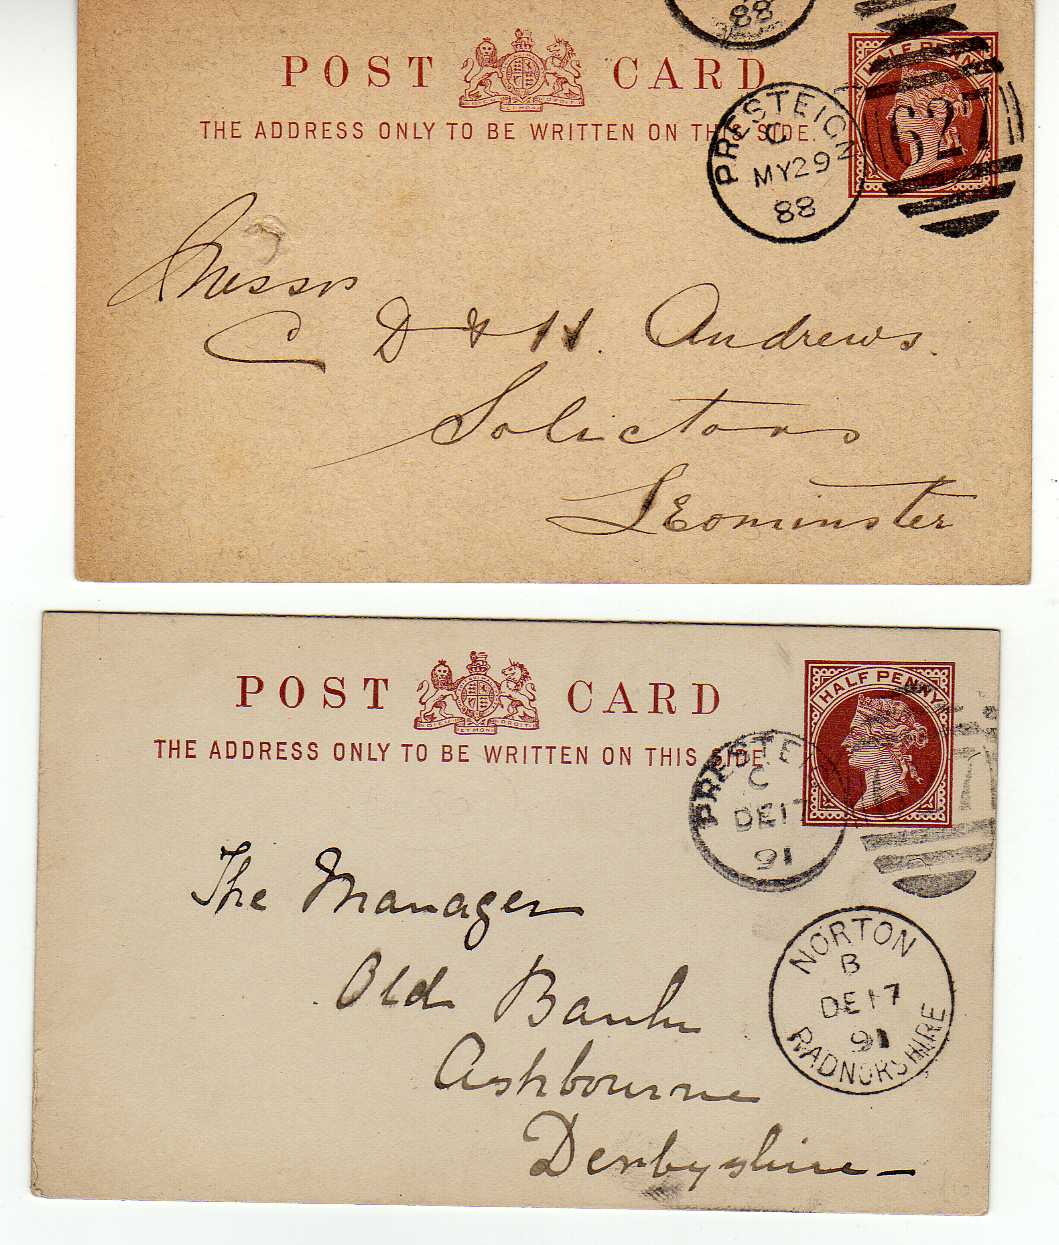 88
POST CARD
THE ADDRESS ONLY TO BE WRITTEN ON THIS SIDE.
HALF PENNY
PRESTEIGN
C
MY 29
88
627
Messrs
C D & H. Andrews.
Solicitors
Leominster
POST CARD
THE ADDRESS ONLY TO BE WRITTEN ON THIS SIDE.
HALF PENNY
PRESTEI
C
DE 17
91
The Manager
Old Bank
Ashbourne
Derbyshire
NORTON
B
DE 17
91
RADNORSHIRE